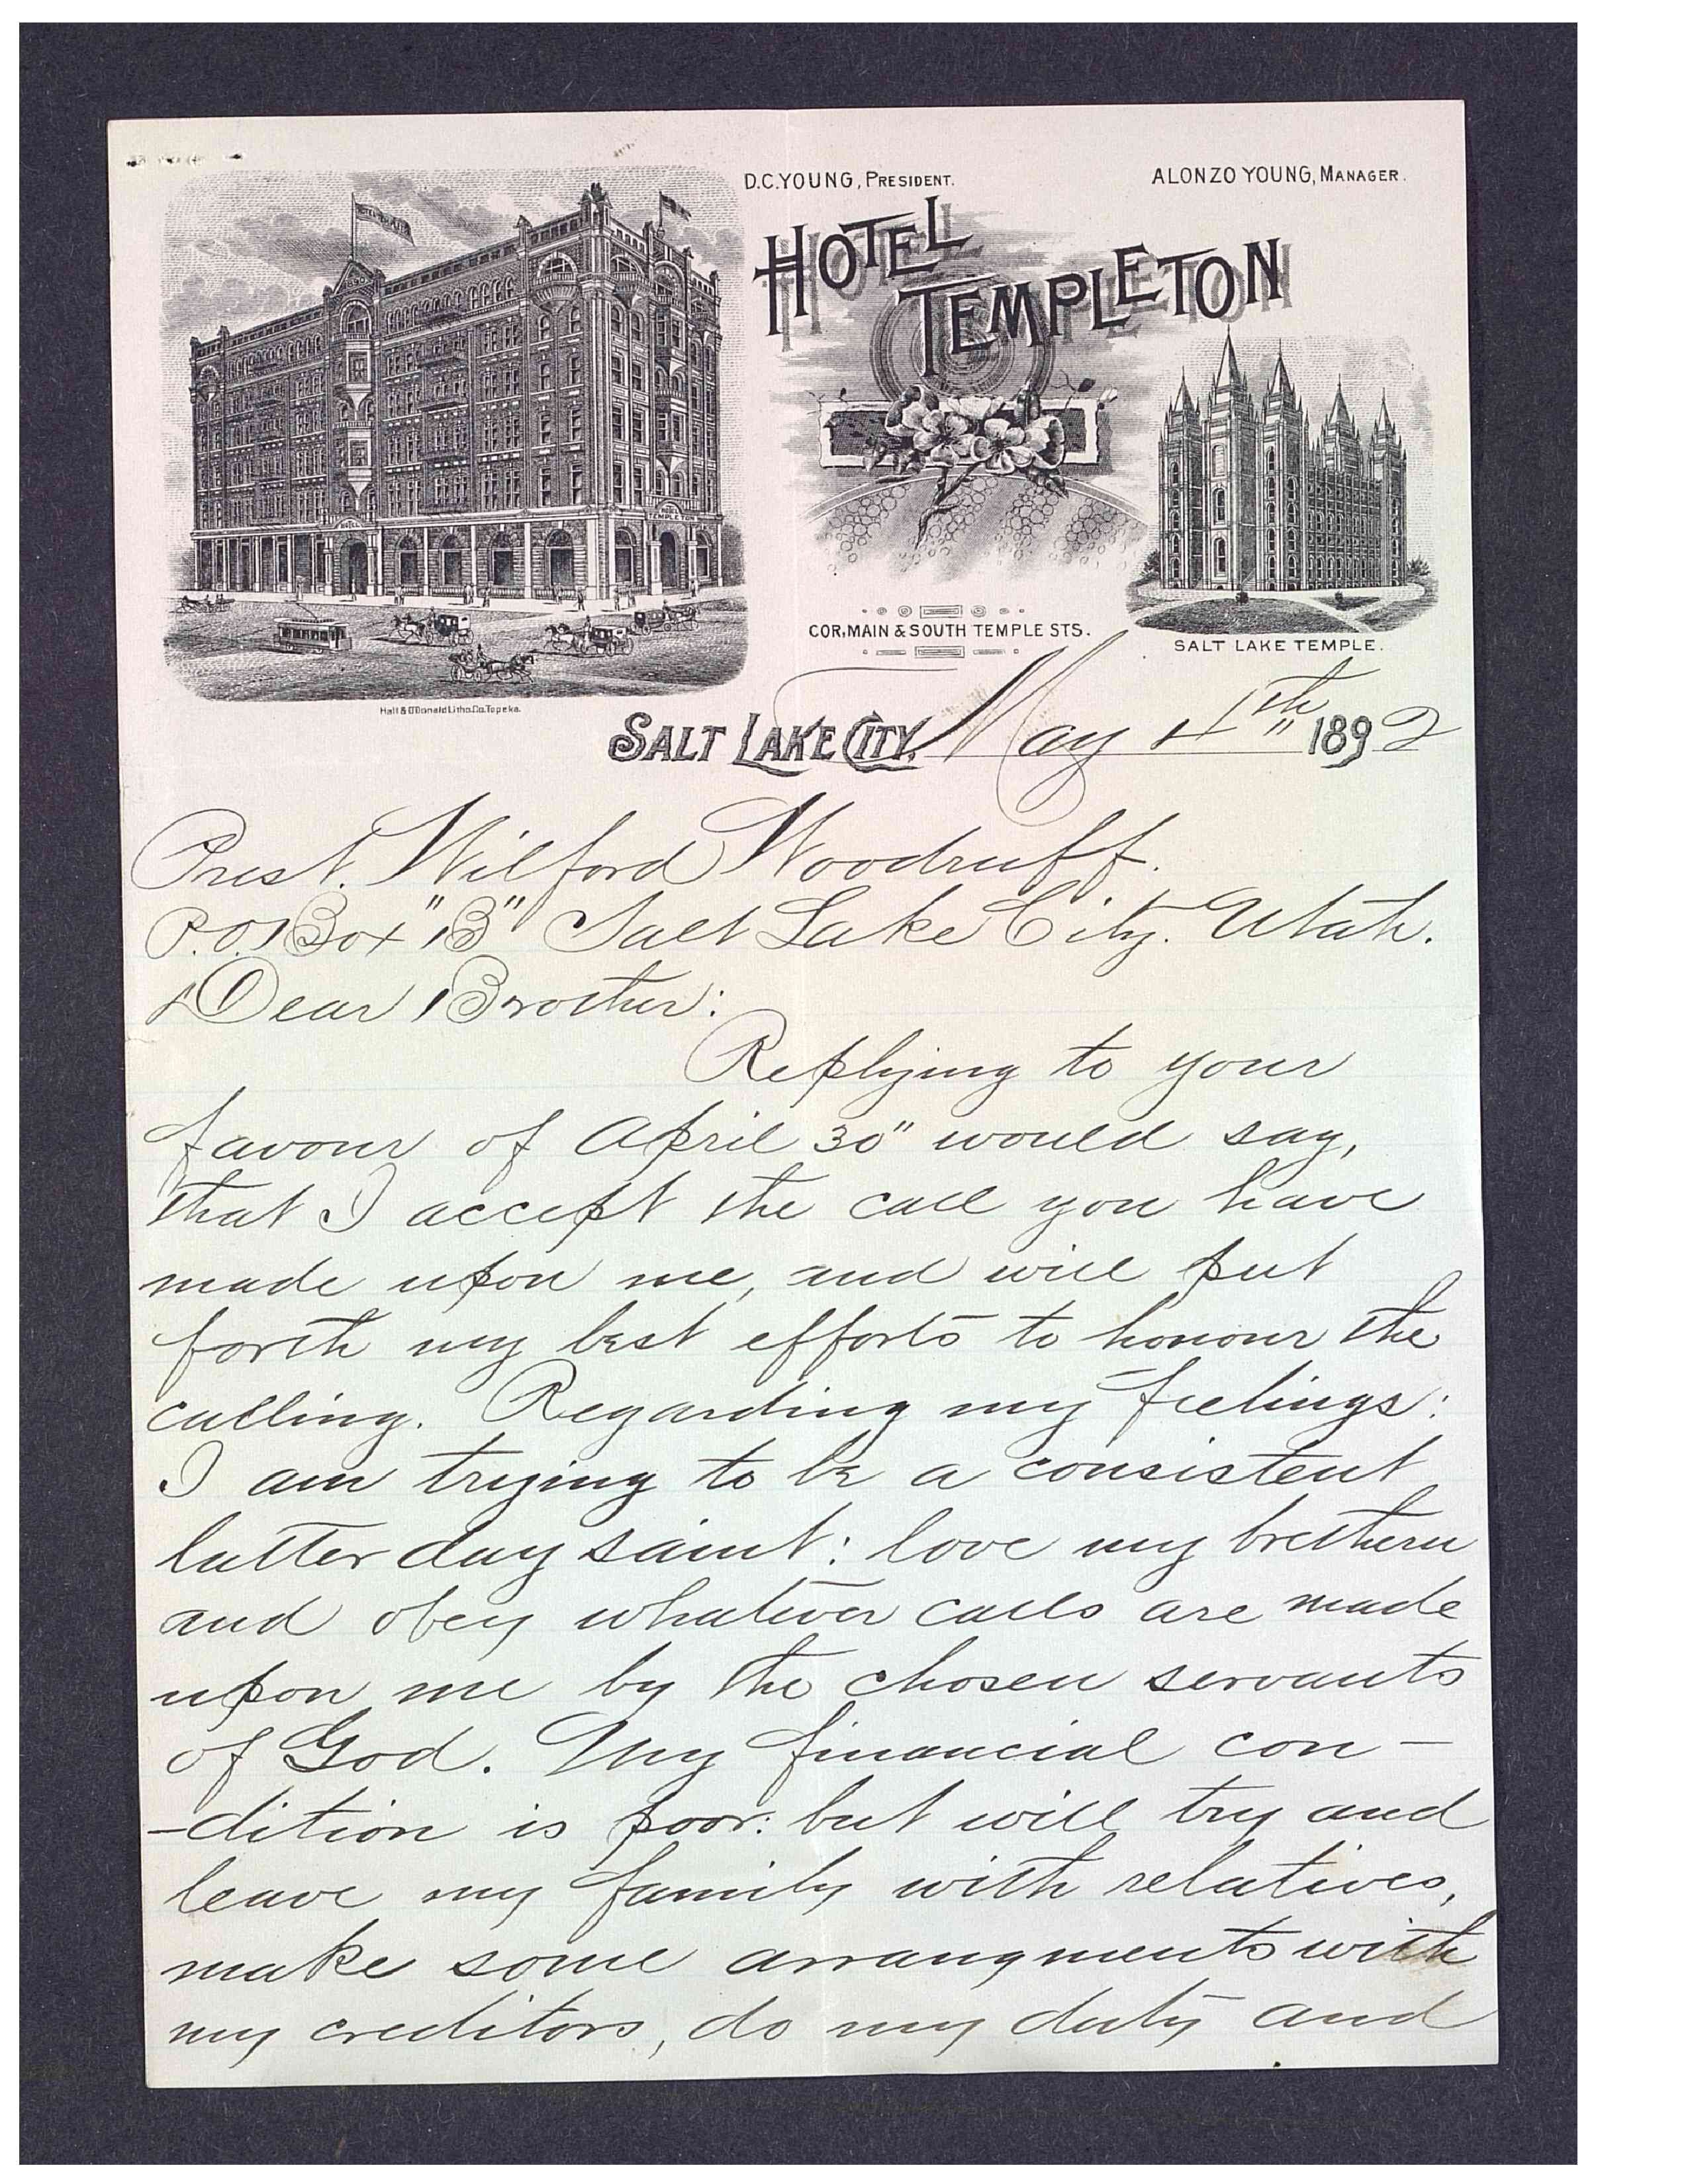 D.C. YOUNG, PRESIDENT.
ALONZO YOUNG, MANAGER.
HOTEL
TEMPLETON
COR. MAIN & SOUTH TEMPLE STS.
SALT LAKE TEMPLE.
Hall & O'Donald Litho. Co. Topeka.
SALT LAKE CITY, May 4th 1892
Prest. Wilford Woodruff.
P.O. Box "B" Salt Lake City. Utah.
Dear Brother:
Replying to your
favour of April 30" would say,
that I accept the call you have
made upon me, and will put
forth my best efforts to honour the
calling. Regarding my feelings:
I am trying to be a consistent
latter day saint: love my brethern
and obey whatever calls are made
upon me by the chosen servants
of God. My financial con-
-dition is poor: but will try and
leave my family with relatives,
make some arrangments with
my creditors, do my duty and